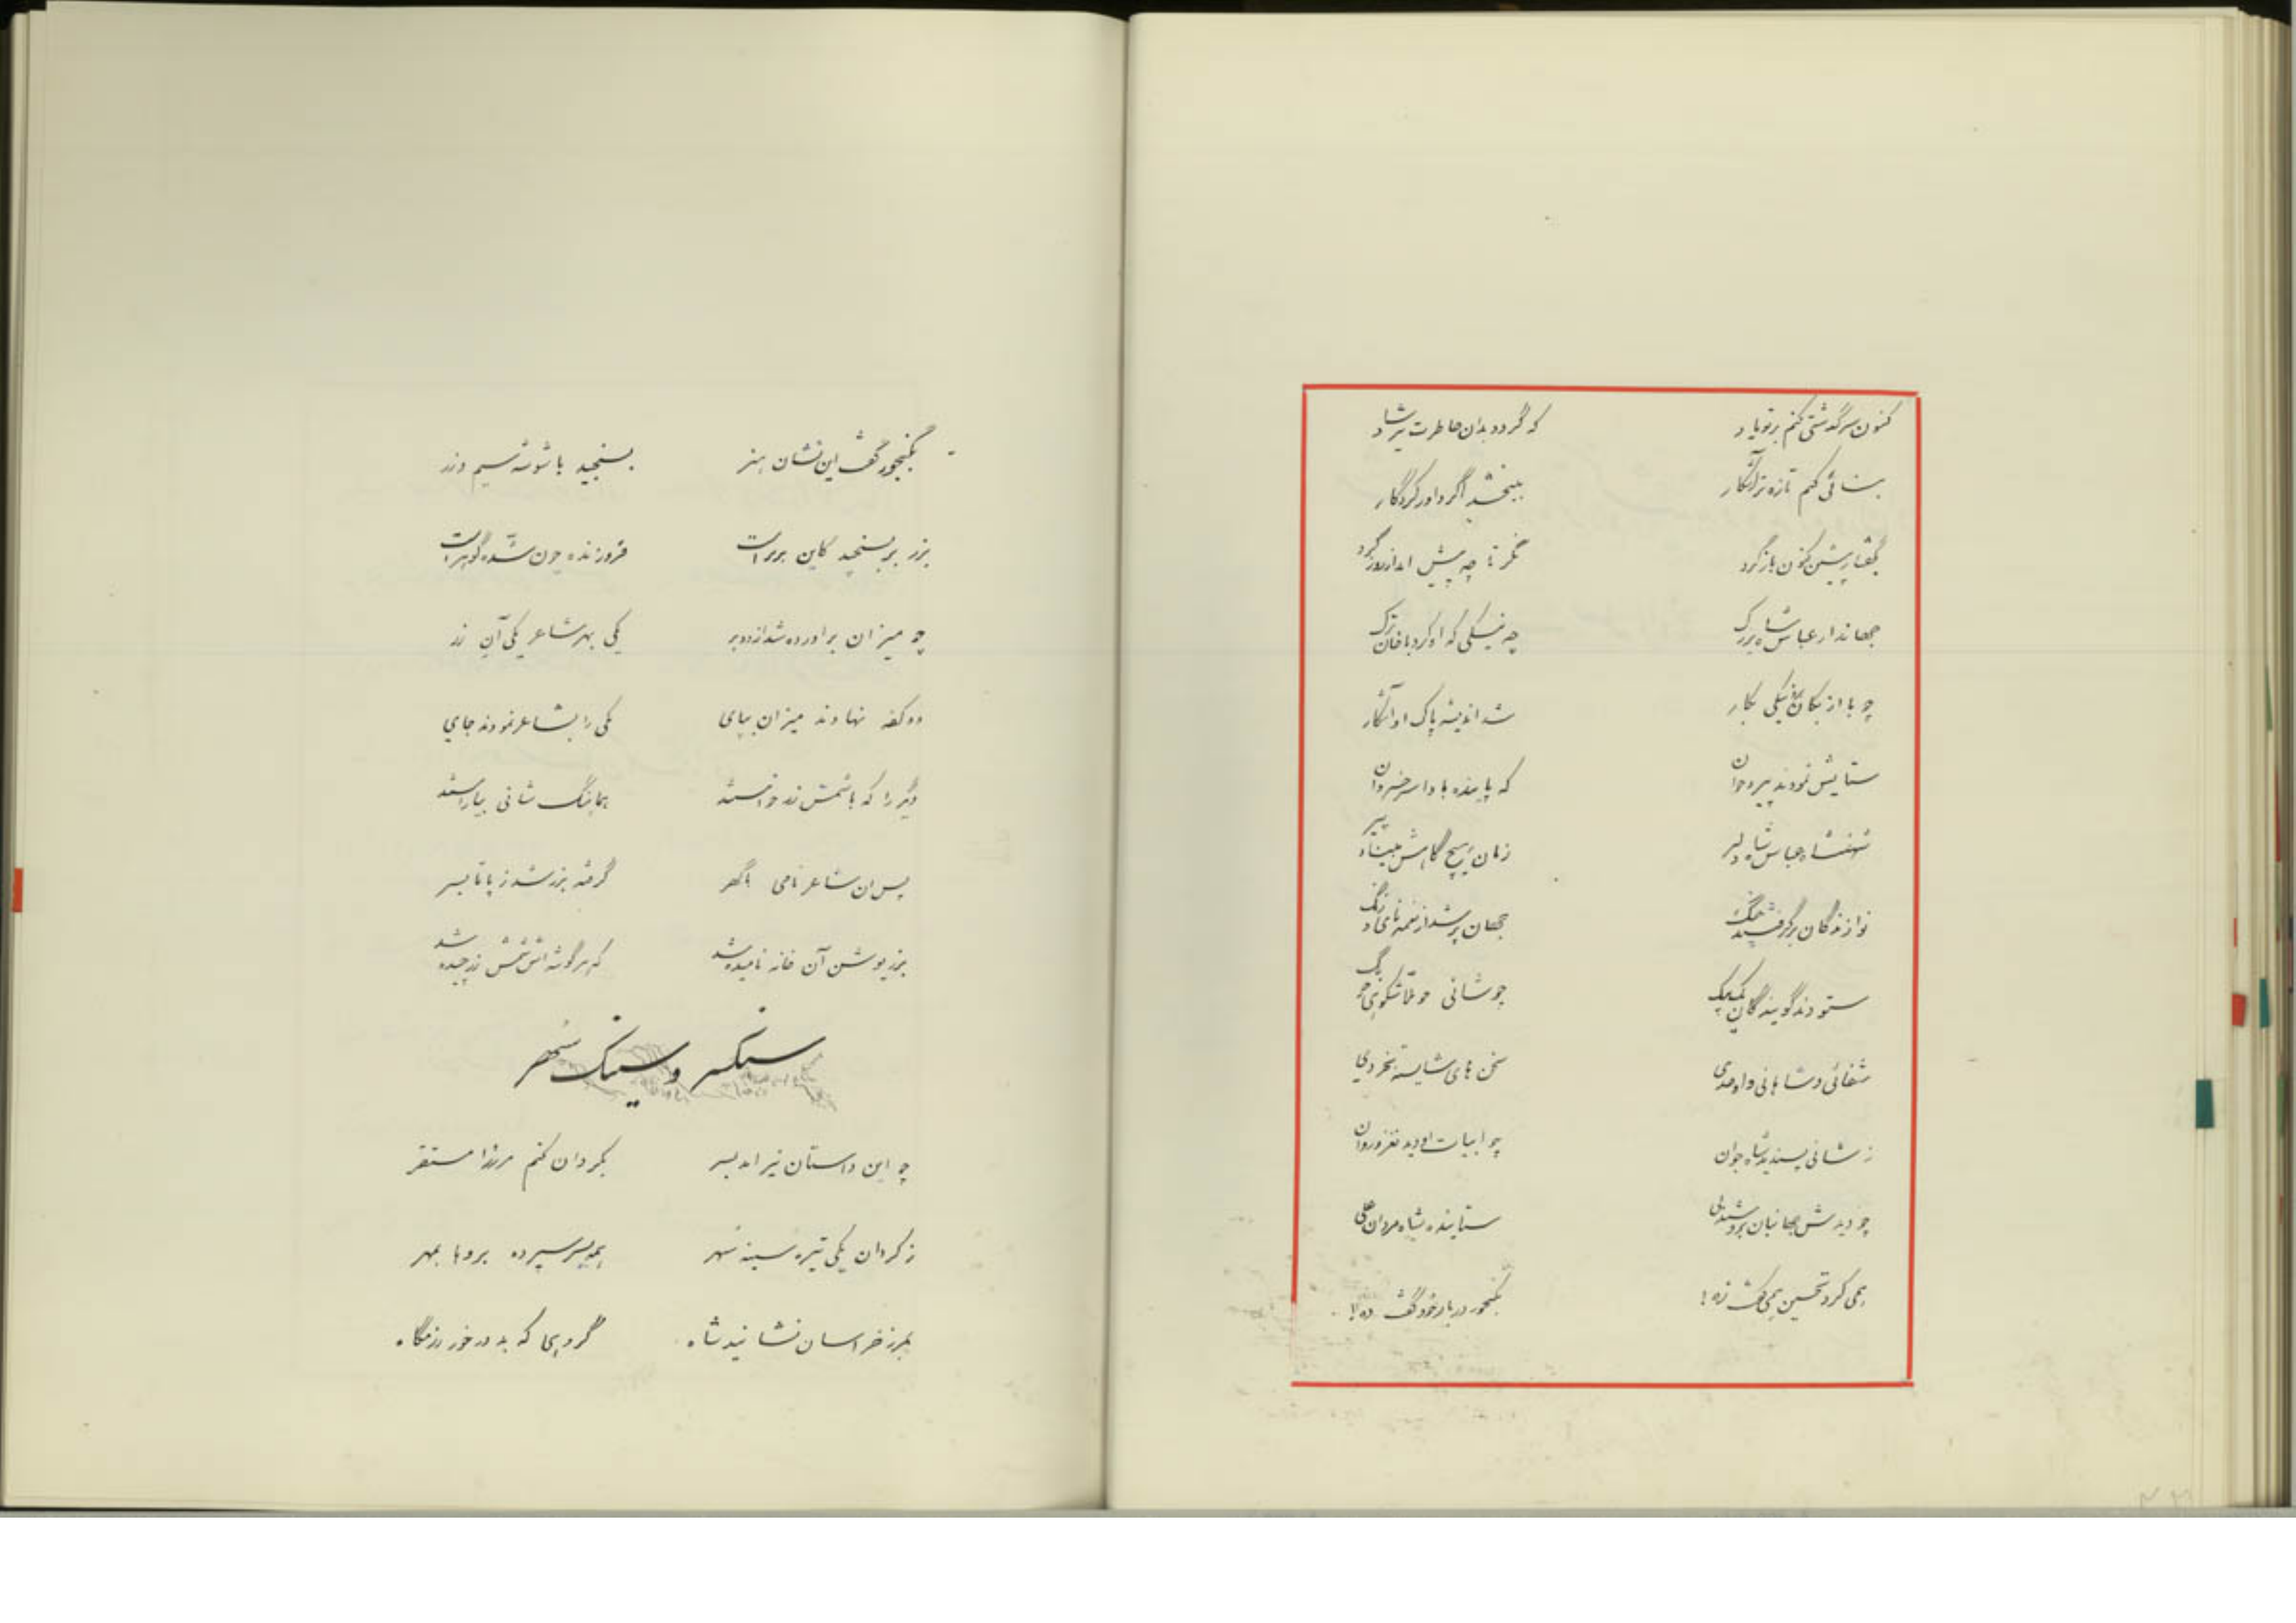 کنون سرگذشتی کنم بر تو یاد که گردد بدان خاطرت نیز شاد
بنائی کنم تازه تر آشکار ببخشد اگر داور کردگار
بگفتار پیشین کنون بازگرد نگر تا چه پیش آمد از روزگرد
جهاندار عباس شاه بزرگ چه نیکی که او کرد با خان ترک
چو با ازبکان نیکی بکار شد اندیشه پاک او آشکار
ستایش نمودند پیر و جوان که پاینده بادا سر خسروان
شهنشاه عباس شاه دلیر زمان هیچ گاهش مبیناد پیر
نوازندگان برگرفتند چنگ جهان پر شد از نغمه نای و زنگ
ستودند گویندگان یک بیک چو شانی چو ملا شکوهی
شفائی و شانی و اوحدی سخن های شایسته بخردی
ز شانی پسندید شاه جوان چو ابیات او دید نغز و روان
چو دیدش جهانبان بروشندلی ستاینده شاه مردان علی
همی کرد تحسین همی گفت زه! بگنجور دربار خود گفت ده!
بگنجور گفت این نشان هنر بسنجید با شوشه سیم و زر
بزر بر بسنجید کاین برتر است فروزنده چون گوهر است
چو میزان برآورده شد از دو بر یکی بهر شاعر یکی آن زر
دو کفه نهادند میزان بپای یکی را بشاعر نمودند جای
دگر را که با شمش زر خواستند هماهنگ شانی بیاراستند
پس آن شاعر نامی گرفته بزر شد ز پا تا بسر
بزر پوشن آن خانه نامیده شد که هر گوشه اش شمش زر چیده شد
سنکسر و سینک شهر
چو این داستان نیز آمد بسر بکردان کنم مرز را مستقر
ز کردان یکی تیره سینه شهر بهم سر سپرده بروها بمهر
بمرز خراسان نشانید شاه گروهی که بد در خور رزمگاه